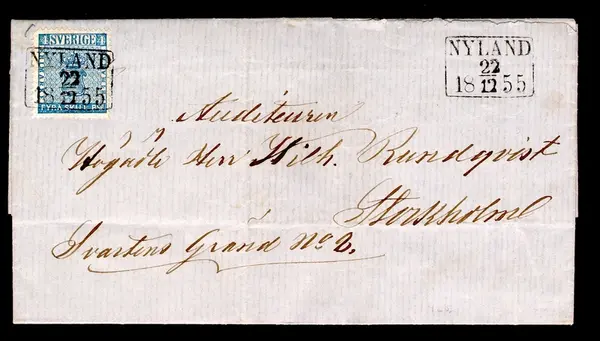 4 SVERIGE 4
NYLAND
22
18 12 55
FYRA SKILL. BCO
NYLAND
22
18 12 55
Auditeuren
Högädle Herr Wilh. Rundqvist
Stockholm
Svartens Gränd No 2.